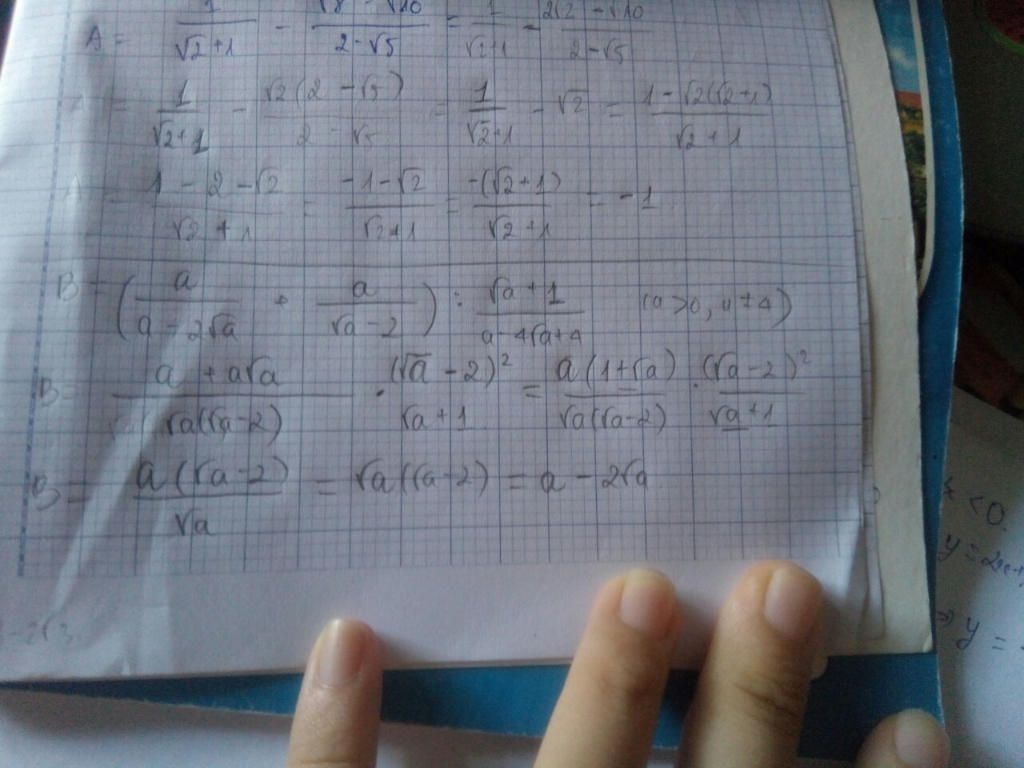 A = 1/(√2+1) - (√8 - √10)/(2-√5) = 1/(√2+1) - (2√2 - √10)/(2-√5)
= 1/(√2+1) - √2(2-√5)/(2-√5) = 1/(√2+1) - √2 = (1-√2(√2+1))/(√2+1)
A = (1-2-√2)/(√2+1) = (-1-√2)/(√2+1) = -(√2+1)/(√2+1) = -1
B = (a/(a-2√a) + a/(√a-2)) : (√a+1)/(a-4√a+4) (a>0, a≠4)
B = (a+a√a)/(√a(√a-2)) · (√a-2)²/(√a+1) = a(1+√a)/(√a(√a-2)) · (√a-2)²/(√a+1)
B = a(√a-2)/√a = √a(√a-2) = a-2√a
<0.
y = 2x+
⇒ y =